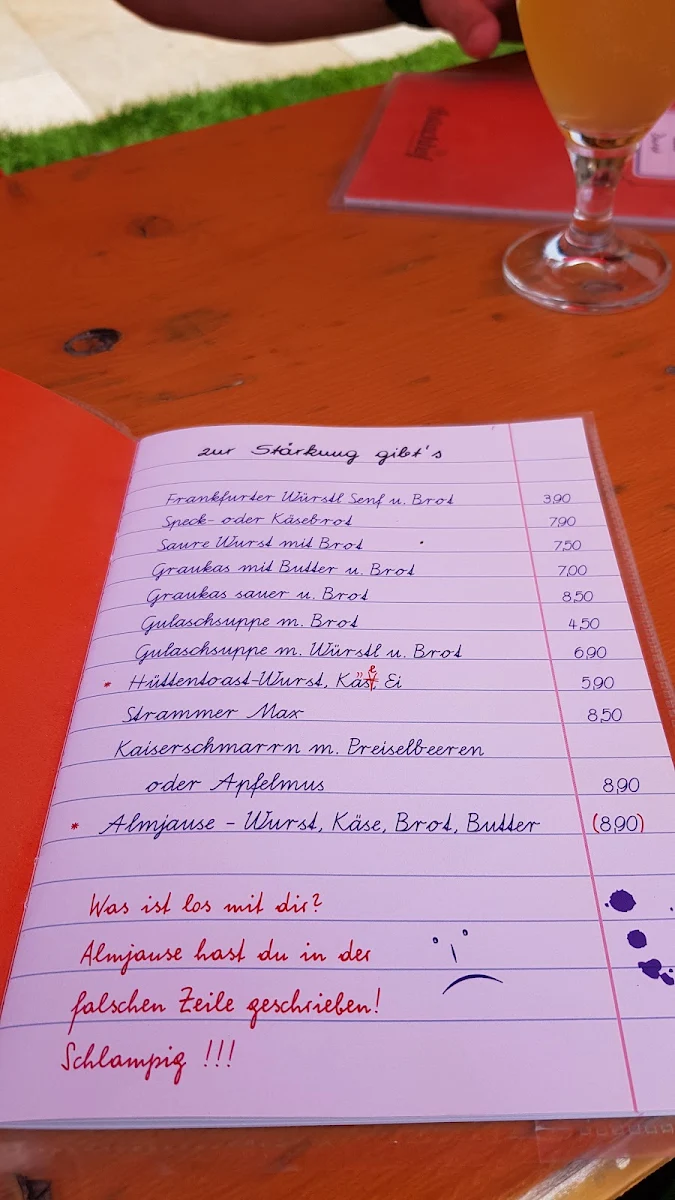 zur Stärkung gibt's
Frankfurter Würstl Senf u. Brot 3,90
Speck- oder Käsebrot 7,90
Saure Wurst mit Brot 7,50
Graukas mit Butter u. Brot 7,00
Graukas sauer u. Brot 8,50
Gulaschsuppe m. Brot 4,50
Gulaschsuppe m. Würstl u. Brot 6,90
* Hüttentoast-Wurst, Käse, Ei 5,90
Strammer Max 8,50
Kaiserschmarrn m. Preiselbeeren
oder Apfelmus 8,90
* Almjause - Wurst, Käse, Brot, Butter (8,90)
Was ist los mit dir?
Almjause hast du in der
falschen Zeile geschrieben!
Schlampig !!!